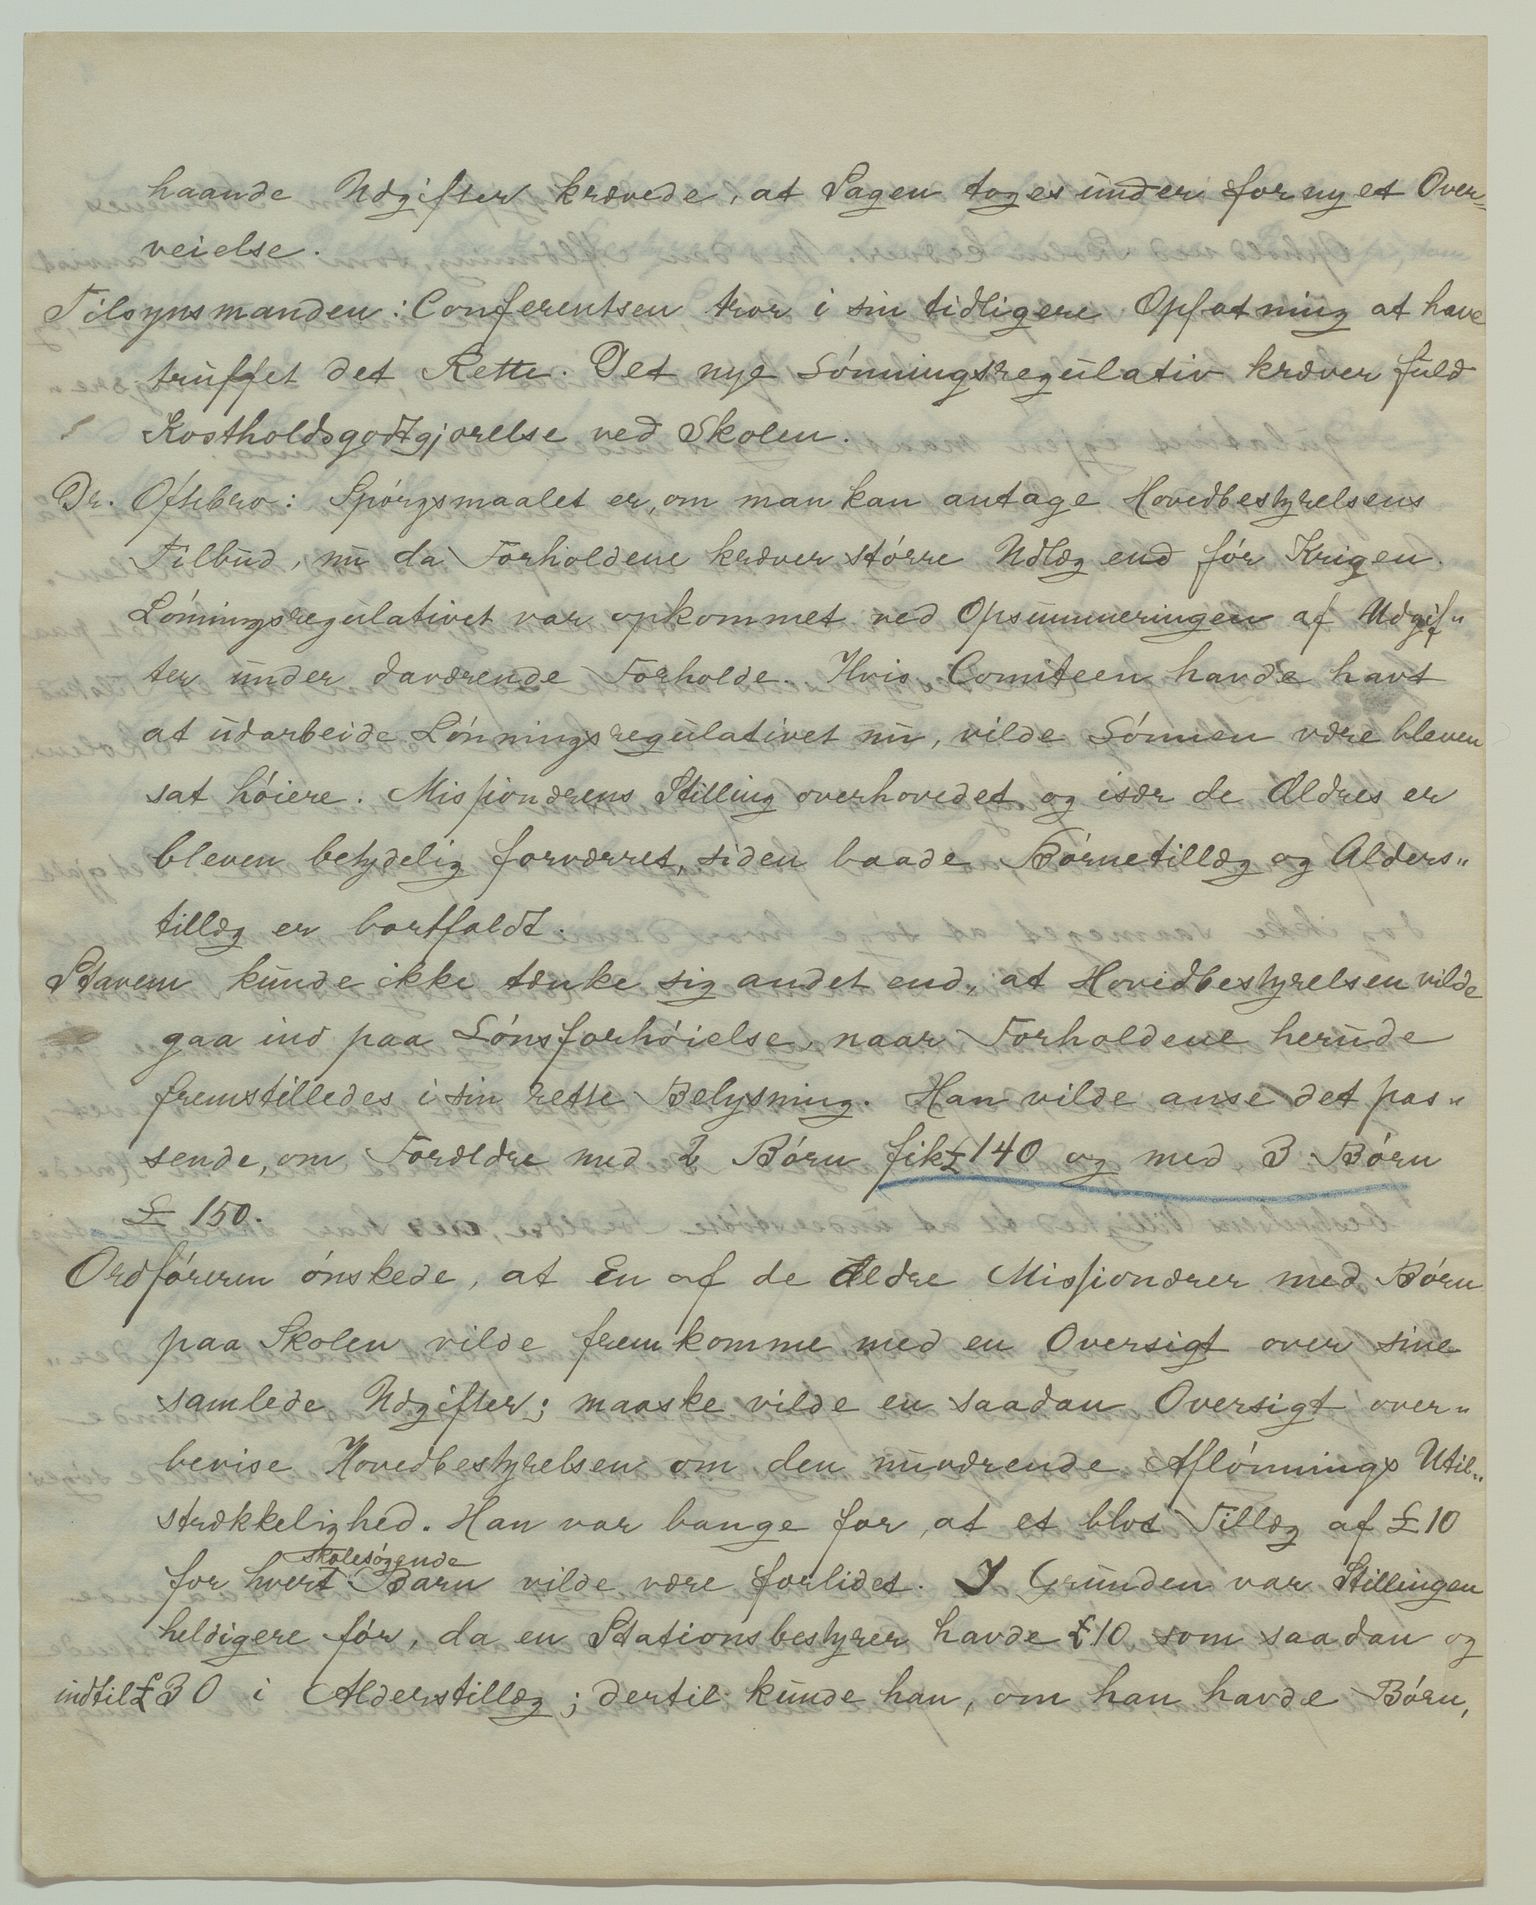 haande Udgifter krævede, at Sagen toges under fornyet Over-
veielse.
Tilsynsmanden: Conferentsen tror i sin tidligere Opfatning at have
truffet det Rette. Det nye Lønningsregulativ kræver fuld
Kostholdsgodtgjørelse ved Skolen.
Dr. Oftebro: Spørgsmaalet er, om man kan antage Hovedbestyrelsens
Tilbud, nu da Forholdene kræver større Udlæg end før Krigen.
Lønningsregulativet var opkommet ved Opsummeringen af Udgif„
ter under daværende Forholde. Hvis Comiteen havde havt
at udarbeide Lønningsregulativet nu, vilde Lønnen være bleven
sat høiere. Missionærens Stilling overhovedet og især de Ældres er
bleven betydelig forværret, siden baade Børnetillæg og Alders„
tillæg er bortfaldt.
Stavem kunde ikke tænke sig andet end, at Hovedbestyrelsen vilde
gaa ind paa Lønsforhøielse, naar Forholdene herude
fremstilledes i sin rette Belysning. Han vilde anse det pas„
sende, om Forældre med 2 Børn fik £140 og med 3 Børn
£ 150.
Ordføreren ønskede, at En af de Ældre Missionærer med Børn
paa Skolen vilde fremkomme med en Oversigt over sine
samlede Udgifter; maaske vilde en saadan Oversigt over„
bevise Hovedbestyrelsen om den nuværende Aflønnings Util„
strækkelighed. Han var bange for, at et blot Tillæg af £10
skolesøgende
for hvert Barn vilde være forlidet. I Grunden var Stillingen
heldigere før, da en Stationsbestyrer havde £10 som saadan og
indtil £30 i Alderstillæg; dertil kunde han, om han havde Børn,